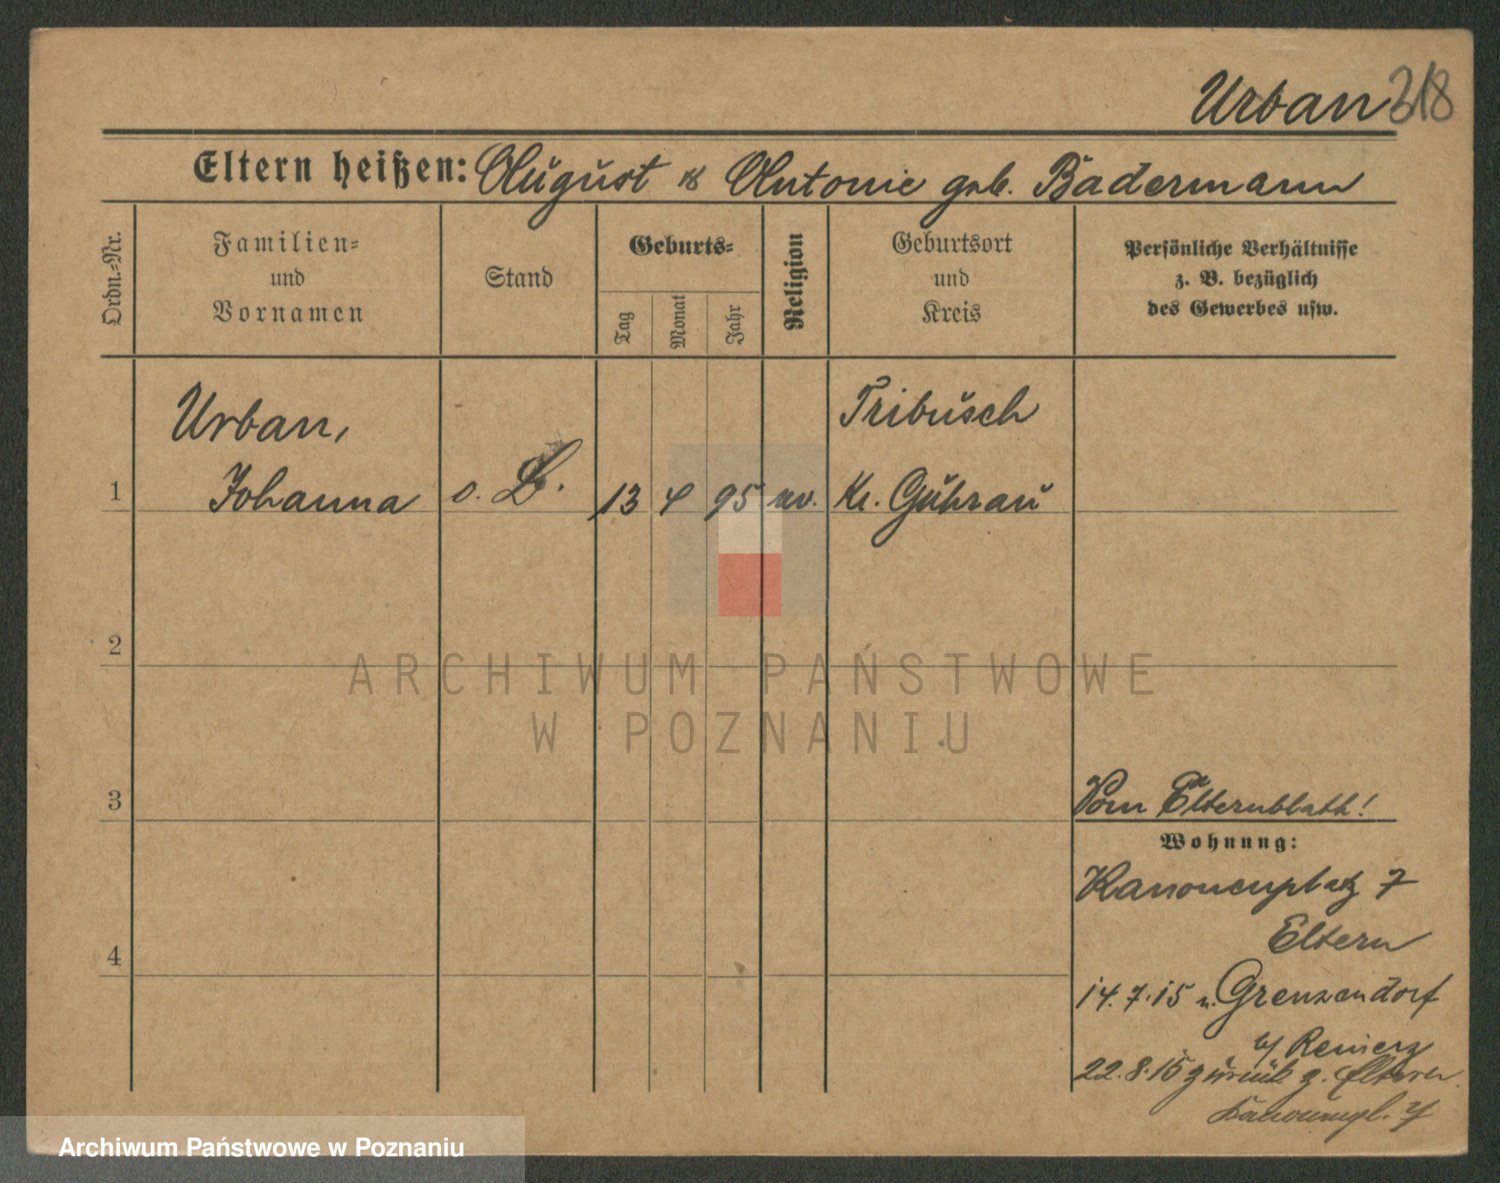 Urban 318
Eltern heißen: August & Antonie geb. Badermann
Ordn.=Nr.
Familien=
und
Vornamen
Stand
Geburts=
Tag
Monat
Jahr
Religion
Geburtsort
und
Kreis
Persönliche Verhältnisse
z. B. bezüglich
des Gewerbes usw.
Urban,
Tribusch
1 Johanna o. B. 13 4 95 ev. Kr. Guhrau
2
ARCHIWUM PAŃSTWOWE
W POZNANIU
3
Vom Elternblatt!
Wohnung:
Kanonenplatz 7
Eltern
4
14.7.15 n. Grenzendorf
b/ Reinerz
22.8.15 zurück z. Eltern
Kanonenpl. 7
Archiwum Państwowe w Poznaniu